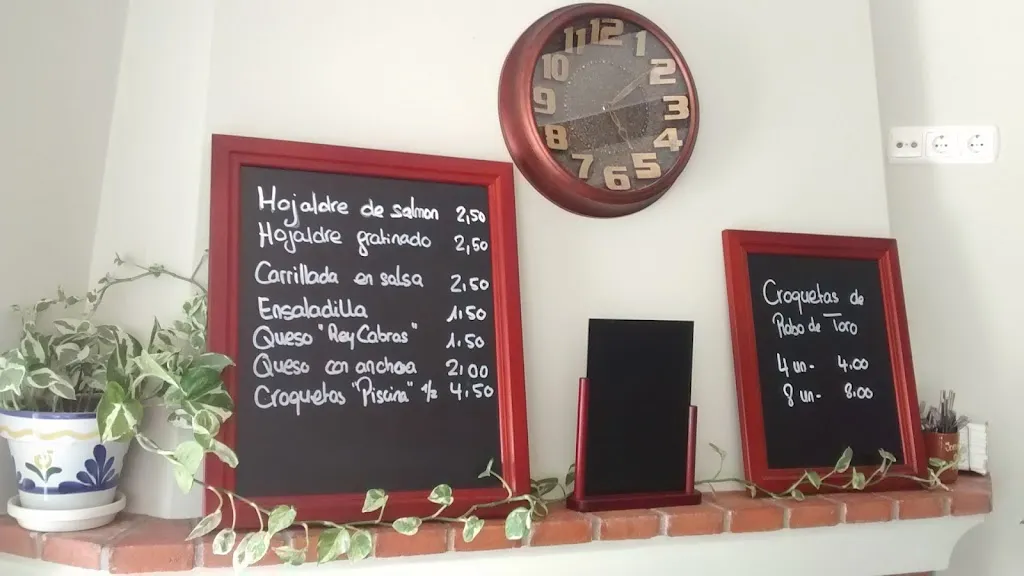 Hojaldre de salmon 2,50
Hojaldre gratinado 2,50
Carrillada en salsa 2,50
Ensaladilla 1.50
Queso "Rey Cabras" 1.50
Queso con anchoa 2,00
Croquetas "Piscina" 1/2 4.50
12
1
2
3
4
5
6
7
8
9
10
11
Croquetas de
Rabo de Toro
4 un- 4.00
8 un- 8.00